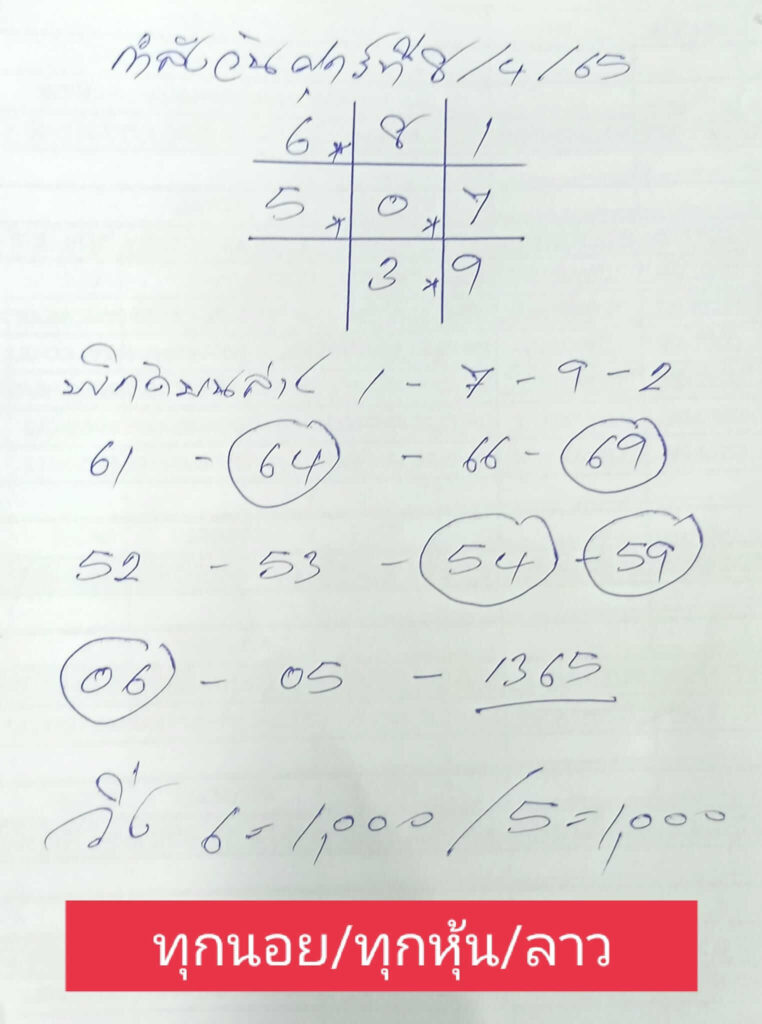 กำลังวันศุกร์ที่ 8/4/65
6 * 8 1
5 * 0 * 7
3 * 9
พิกัดบนล่าง 1 - 7 - 9 - 2
61 - 64 - 66 - 69
52 - 53 - 54 - 59
06 - 05 - 1365
วิ่ง 6 = 1,000 / 5 = 1,000
ทุกนอย/ทุกหุ้น/ลาว